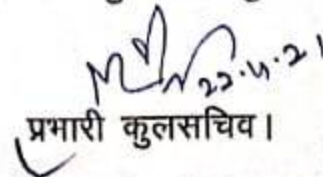 22.4.21
प्रभारी कुलसचिव।